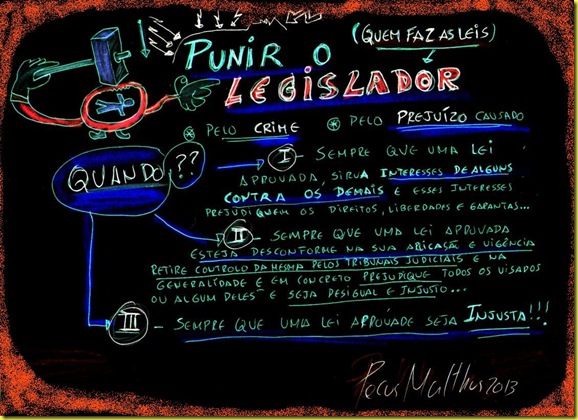 PUNIR O (QUEM FAZ AS LEIS)
LEGISLADOR
⊛ PELO CRIME ⊛ PELO PREJUÍZO CAUSADO
QUANDO??
I - SEMPRE QUE UMA LEI
APROVADA SIRVA INTERESSES DE ALGUNS
CONTRA OS DEMAIS E ESSES INTERESSES
PREJUDIQUEM OS DIREITOS, LIBERDADES E GARANTIAS...
II - SEMPRE QUE UMA LEI APROVADA
ESTEJA DESCONFORME NA SUA VIGÊNCIA
RETIRE CONTROLO DA MESMA PELOS TRIBUNAIS JUDICIAIS E NA
GENERALIDADE E EM CONCRETO PREJUDIQUE TODOS OS VISADOS
OU ALGUM DELES E SEJA DESIGUAL E INJUSTO...
III - SEMPRE QUE UMA LEI APROVADE SEJA INJUSTA!!!
2013